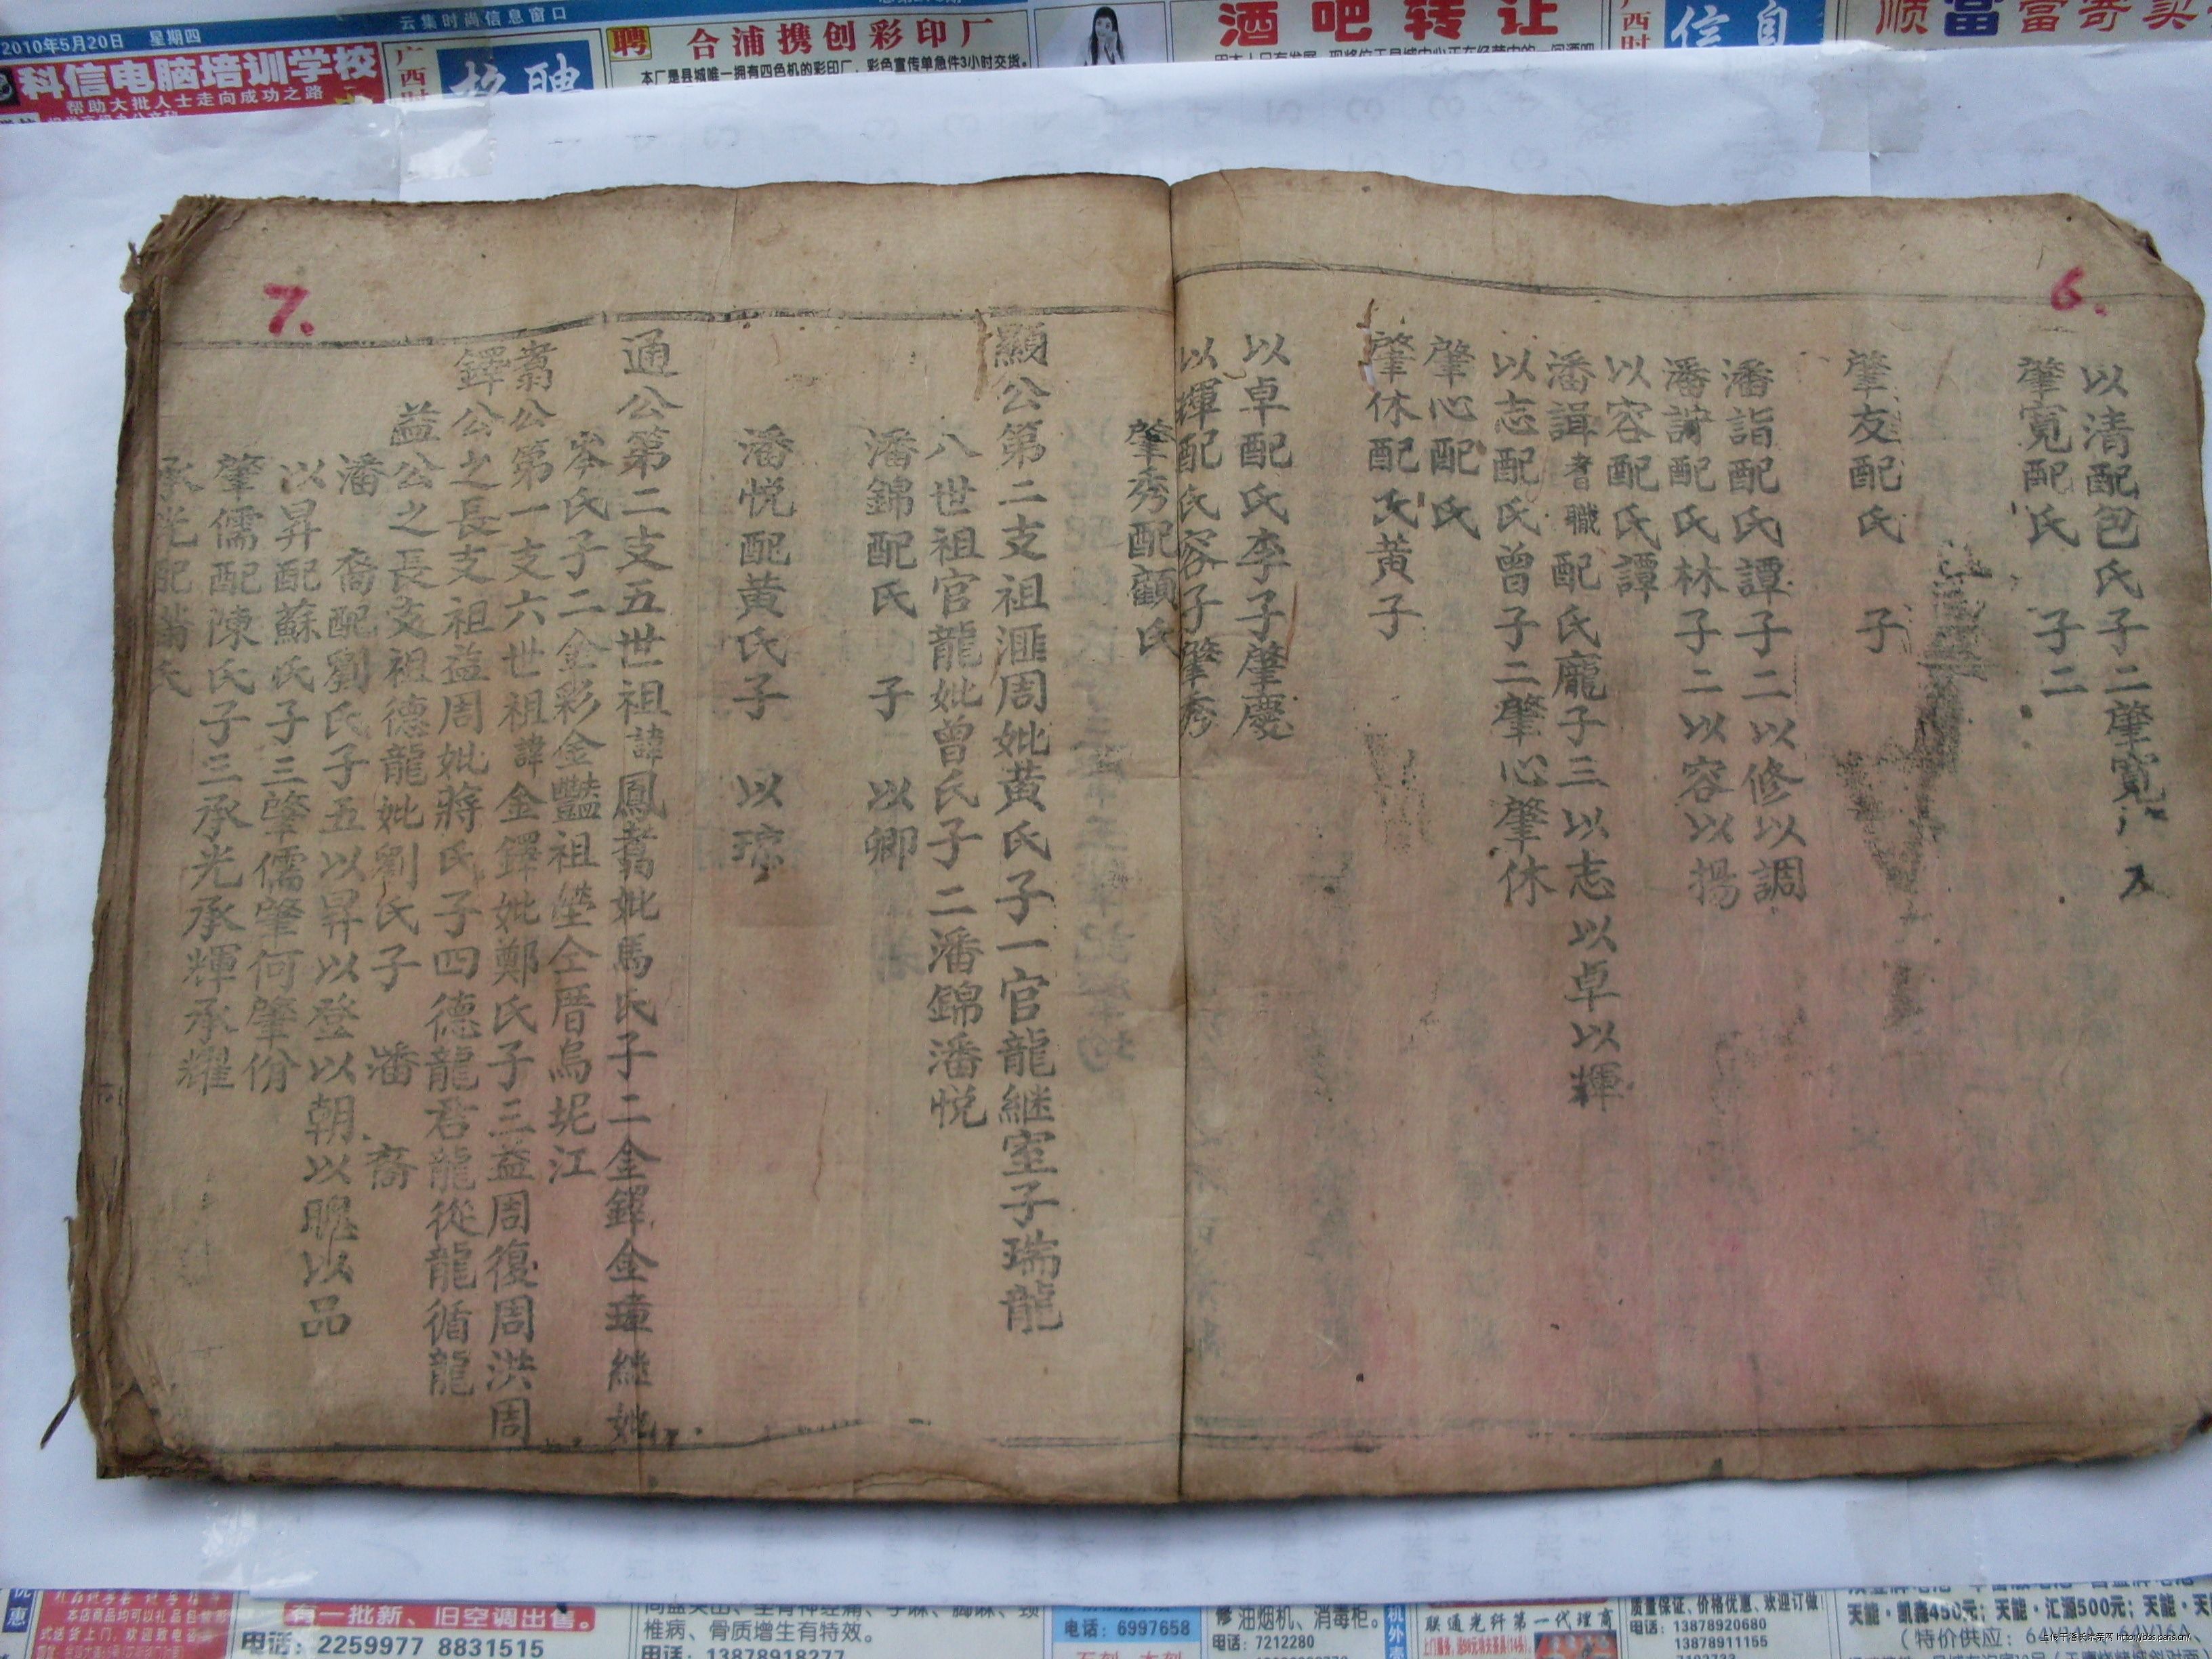 2010年5月20日 星期四
云集时尚信息窗口
科信电脑培训学校
帮助大批人士走向成功之路
广西时
招聘
聘 合浦携创彩印厂
本厂是县城唯一拥有四色机的彩印厂，彩色宣传单急件3小时交货。
酒吧转让
广西时
信息
顺富富寄卖
6.
以清配包氏子二肇寬
肇寬配氏 子二
肇友配氏 子
潘詣配氏譚子二以修以調
潘諪配氏林子二以容以揚
以容配氏譚
潘諿耆職配氏龐子三以志以卓以輝
以志配氏曾子二肇心肇休
肇心配氏
肇休配氏黃子
以卓配氏李子肇慶
以輝配氏容子肇秀
肇秀配顧氏
7.
顯公第二支祖滙周妣黃氏子一官龍継室子瑞龍
八世祖官龍妣曾氏子二潘錦潘悦
潘錦配氏 子 以卿
潘悦配黃氏子 以琼
通公第二支五世祖諱鳳翥妣馬氏子二金鐸金璋継妣
岑氏子二金彩金豔祖塋仝厝烏坭江
翥公第一支六世祖諱金鐸妣鄭氏子三益周復周洪周
鐸公之長支祖益周妣蔣氏子四德龍君龍從龍循龍
益公之長支祖德龍妣劉氏子 潘 裔
潘 裔配劉氏子五以昇以登以朝以聰以品
以昇配蘇氏子三肇儒肇何肇份
肇儒配陳氏子三承光承輝承耀
承光配潘氏
有一批新、旧空调出售。
电话：2259977 8831515
椎病、骨质增生有特效。
电话：13878918277
电话：6997658
修 油烟机、消毒柜。
电话：7212280
联通光纤第一代理商
质量保证、价格优惠、欢迎订做
电话：13878920680
13878911155
天能·凯鑫450元；天能·汇源500元；天能·天